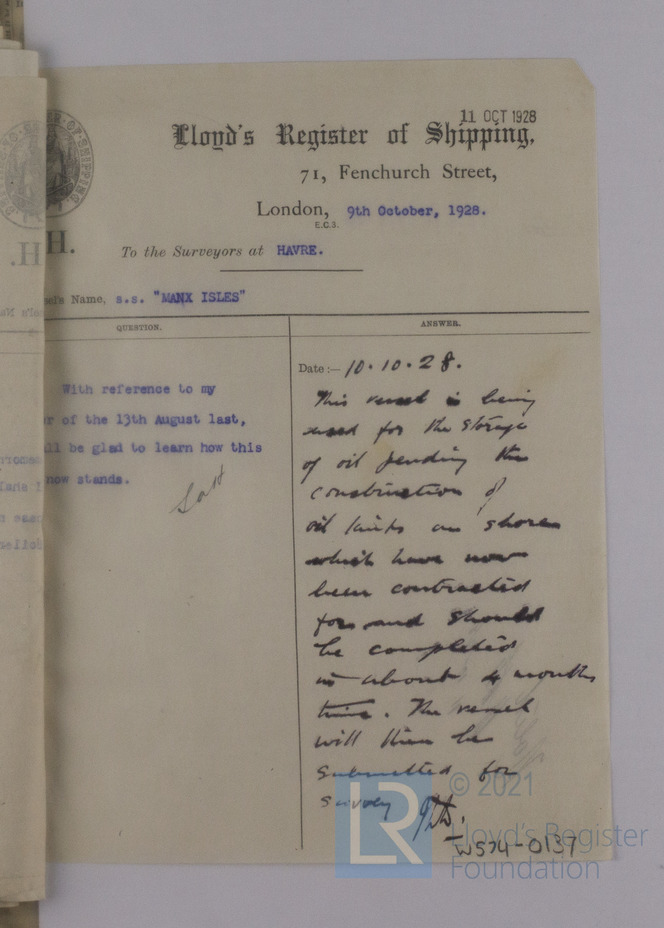 11 OCT 1928
Lloyd's Register of Shipping,
71, Fenchurch Street,
London, 9th October, 1928.
E.C.3.
H.
To the Surveyors at HAVRE.
sel's Name, s.s. "MANX ISLES"
QUESTION.
ANSWER.
With reference to my
r of the 13th August last,
ll be glad to learn how this
now stands.
Date :— 10.10.28.
This vessel is being
used for the storage
of oil pending the
construction of
oil tanks on shore
which have now
been contracted
for and should
be completed
in about 4 months
time. The vessel
will then be
submitted for
survey
W574-0137
© 2021
Lloyd's Register
Foundation
LR